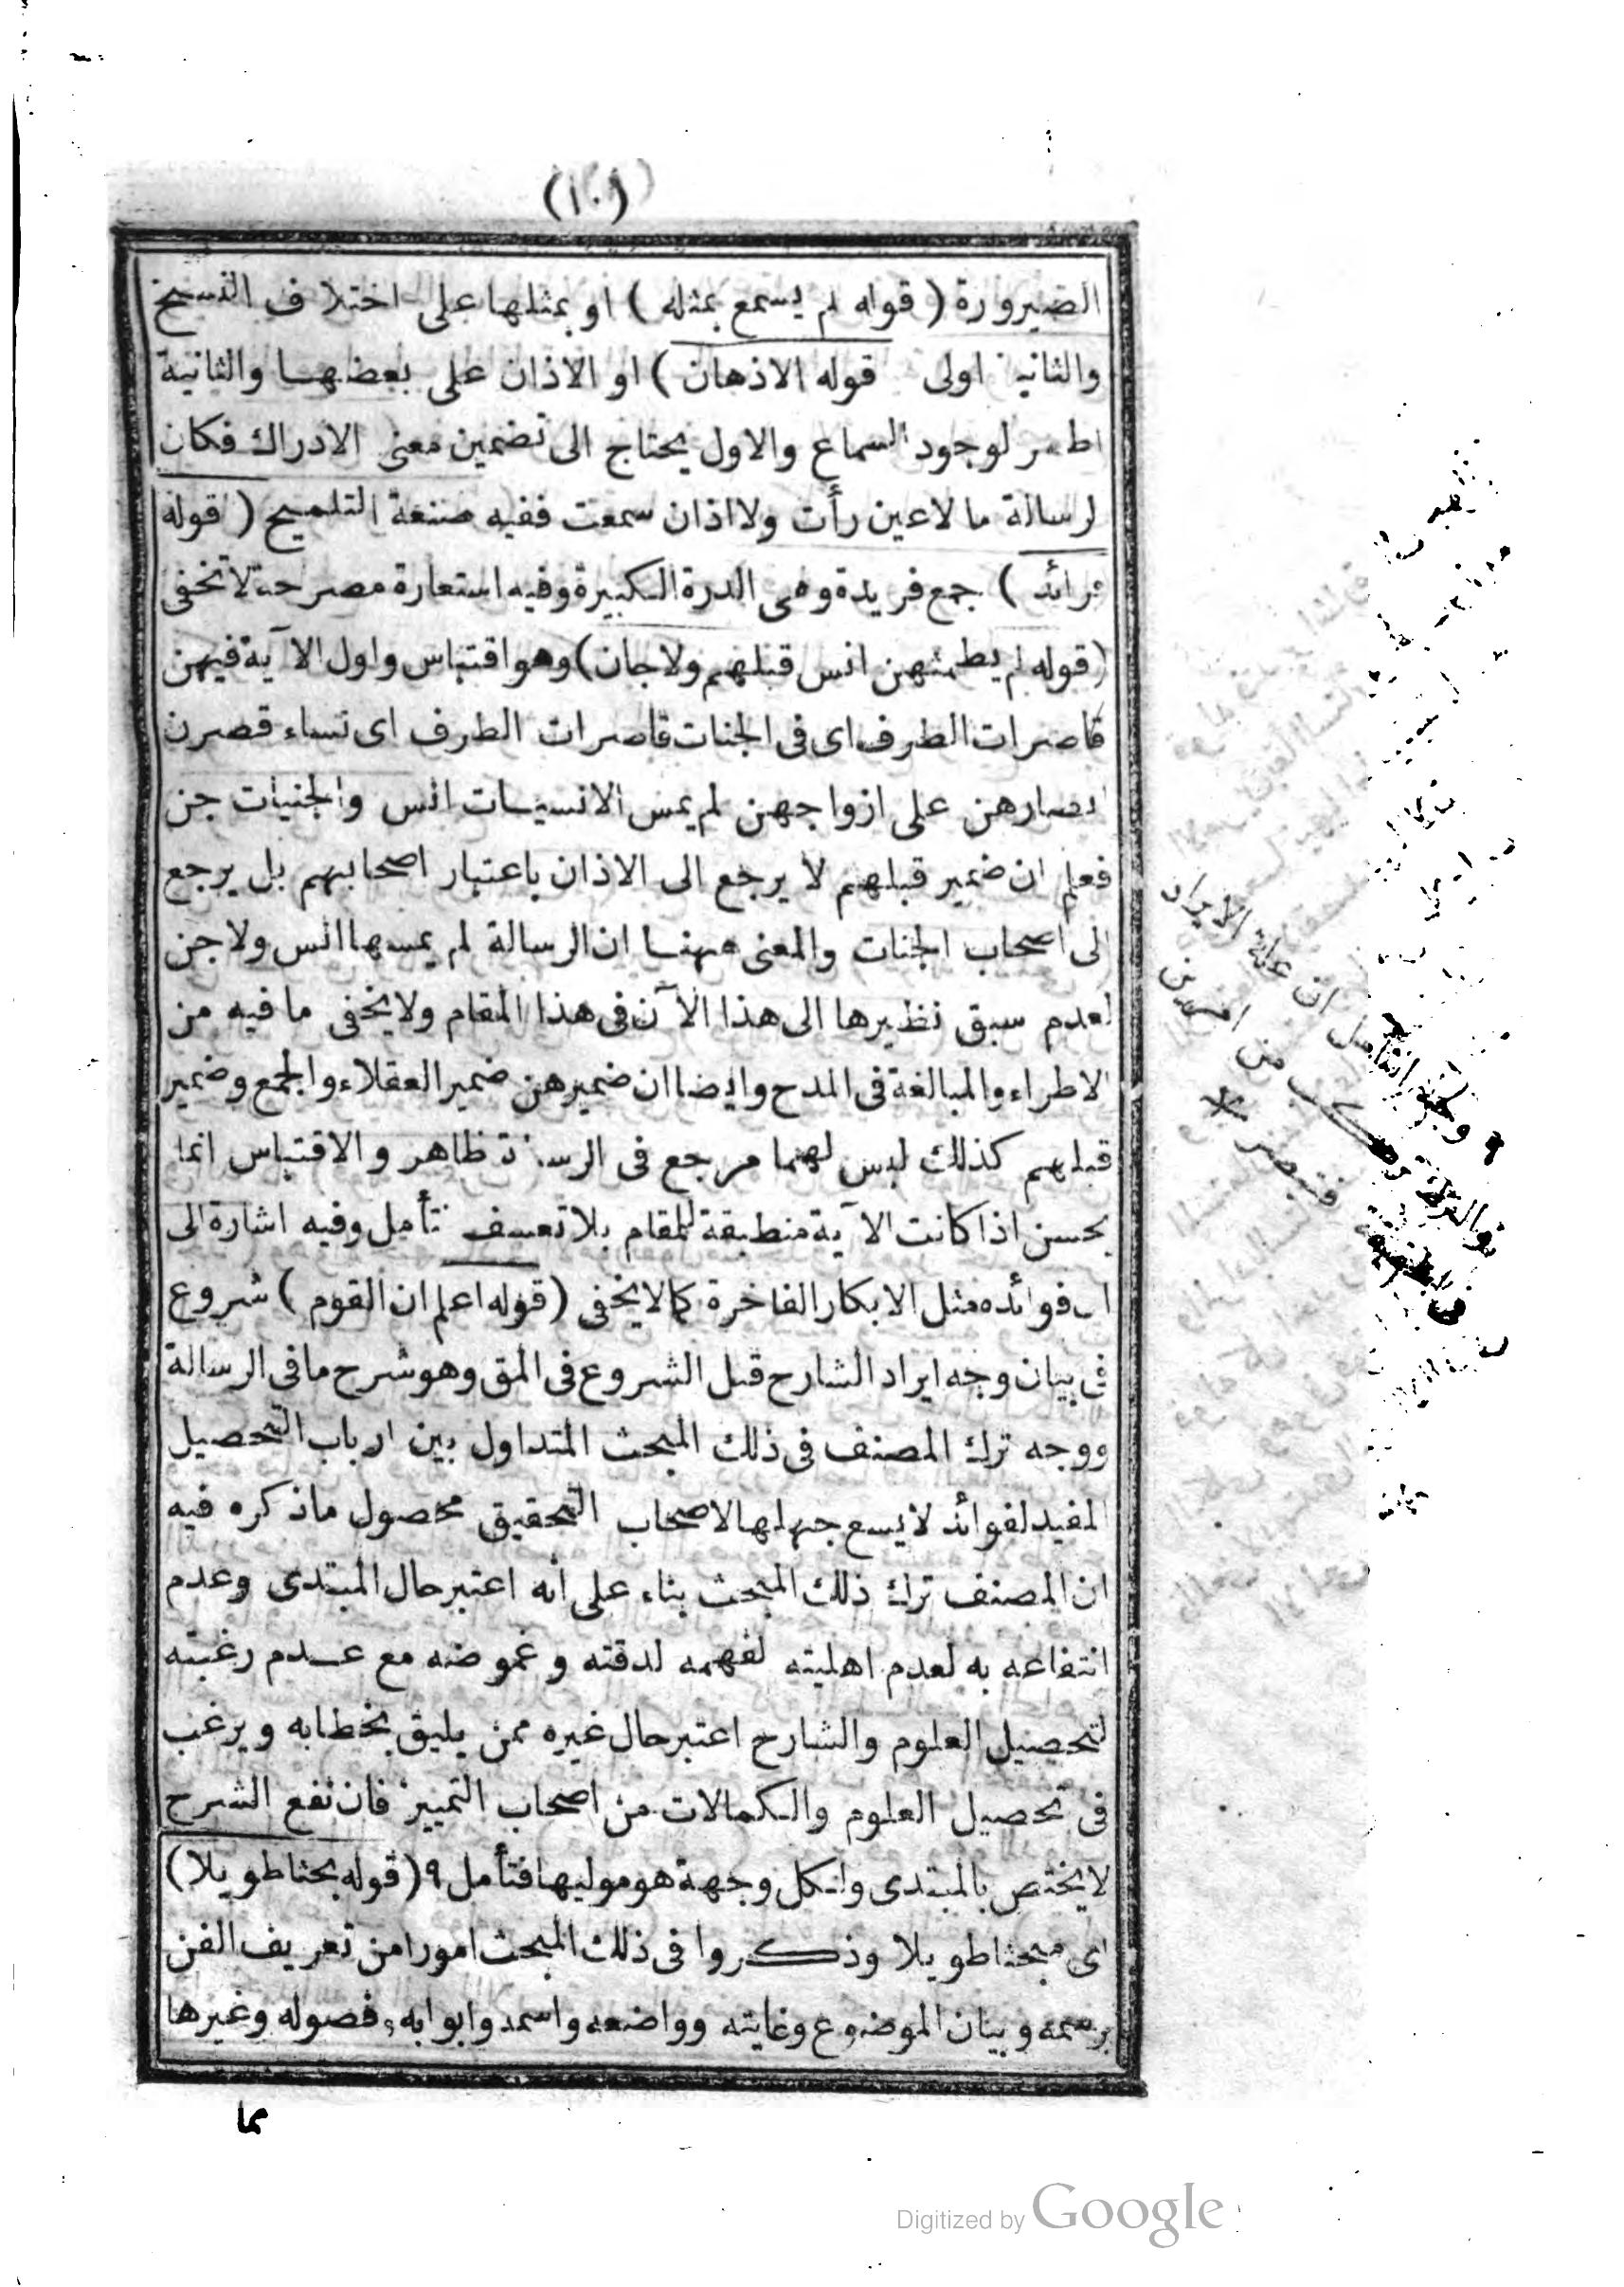 (١٠)
الضيرورة ( قوله لم يسمع بمثله ) او بمثلها على اختلاف النسخ
والثانية اولى قوله الاذهان ) او الاذان على بعضها والثانية
اظهر لوجود السماع والاول يحتاج الى تضمين معنى الادراك فكان
لرسالة ما لاعين رأت ولااذان سمعت ففيه صنعة التلميح ( قوله
فرائد ) جمع فريدة وهى الدرة الكبيرة وفيه استعارة مصرحة لاتخفى
( قوله لم يطمثهن انس قبلهم ولاجان ) وهو اقتباس واول الآية فيهن
قاصرات الطرف اى فى الجنات قاصرات الطرف اى نساء قصرن
ابصارهن على ازواجهن لم يمس الانسيات انس والجنيات جن
فعلم ان ضمير قبلهم لا يرجع الى الاذان باعتبار اصحابهم بل يرجع
الى اصحاب الجنات والمعنى ههنا ان الرسالة لم يمسها انس ولا جن
لعدم سبق نظيرها الى هذا الآن فى هذا المقام ولايخفى ما فيه من
الاطراء والمبالغة فى المدح وايضا ان ضميرهن ضمير العقلاء والجمع وضمير
قبلهم كذلك ليس لهما مرجع فى الرسا ة ظاهر والاقتباس انما
يحسن اذا كانت الآية منطبقة للمقام بلا تعسف تأمل وفيه اشارة الى
ان فوائده مثل الابكار الفاخرة كما لايخفى ( قوله اعلم ان القوم ) شروع
فى بيان وجه ايراد الشارح قبل الشروع فى المق وهو شرح ما فى الرسالة
ووجه ترك المصنف فى ذلك المبحث المتداول بين ارباب التحصيل
المفيد لفوائد لايسع جهلها لاصحاب التحقيق محصول ماذكره فيه
ان المصنف ترك ذلك المبحث بناء على انه اعتبر حال المبتدى وعدم
انتفاعه به لعدم اهليته لفهمه لدقته وغموضه مع عدم رغبته
لتحصيل العلوم والشارح اعتبر حال غيره ممن يليق بخطابه ويرغب
فى تحصيل العلوم والكمالات من اصحاب التمييز فان نفع الشرح
لايختص بالمبتدى ولكل وجهة هو موليها فتأمل ٩ ( قوله بحثا طويلا )
اى مبحثا طويلا وذكروا فى ذلك المبحث امورا من تعريف الفن
برسمه وبيان الموضوع وغايته وواضعه واسمه وابوابه وفصوله وغيرها
مما
٩ وجه التأمل ان علة الايراد
من امرين
Digitized by Google